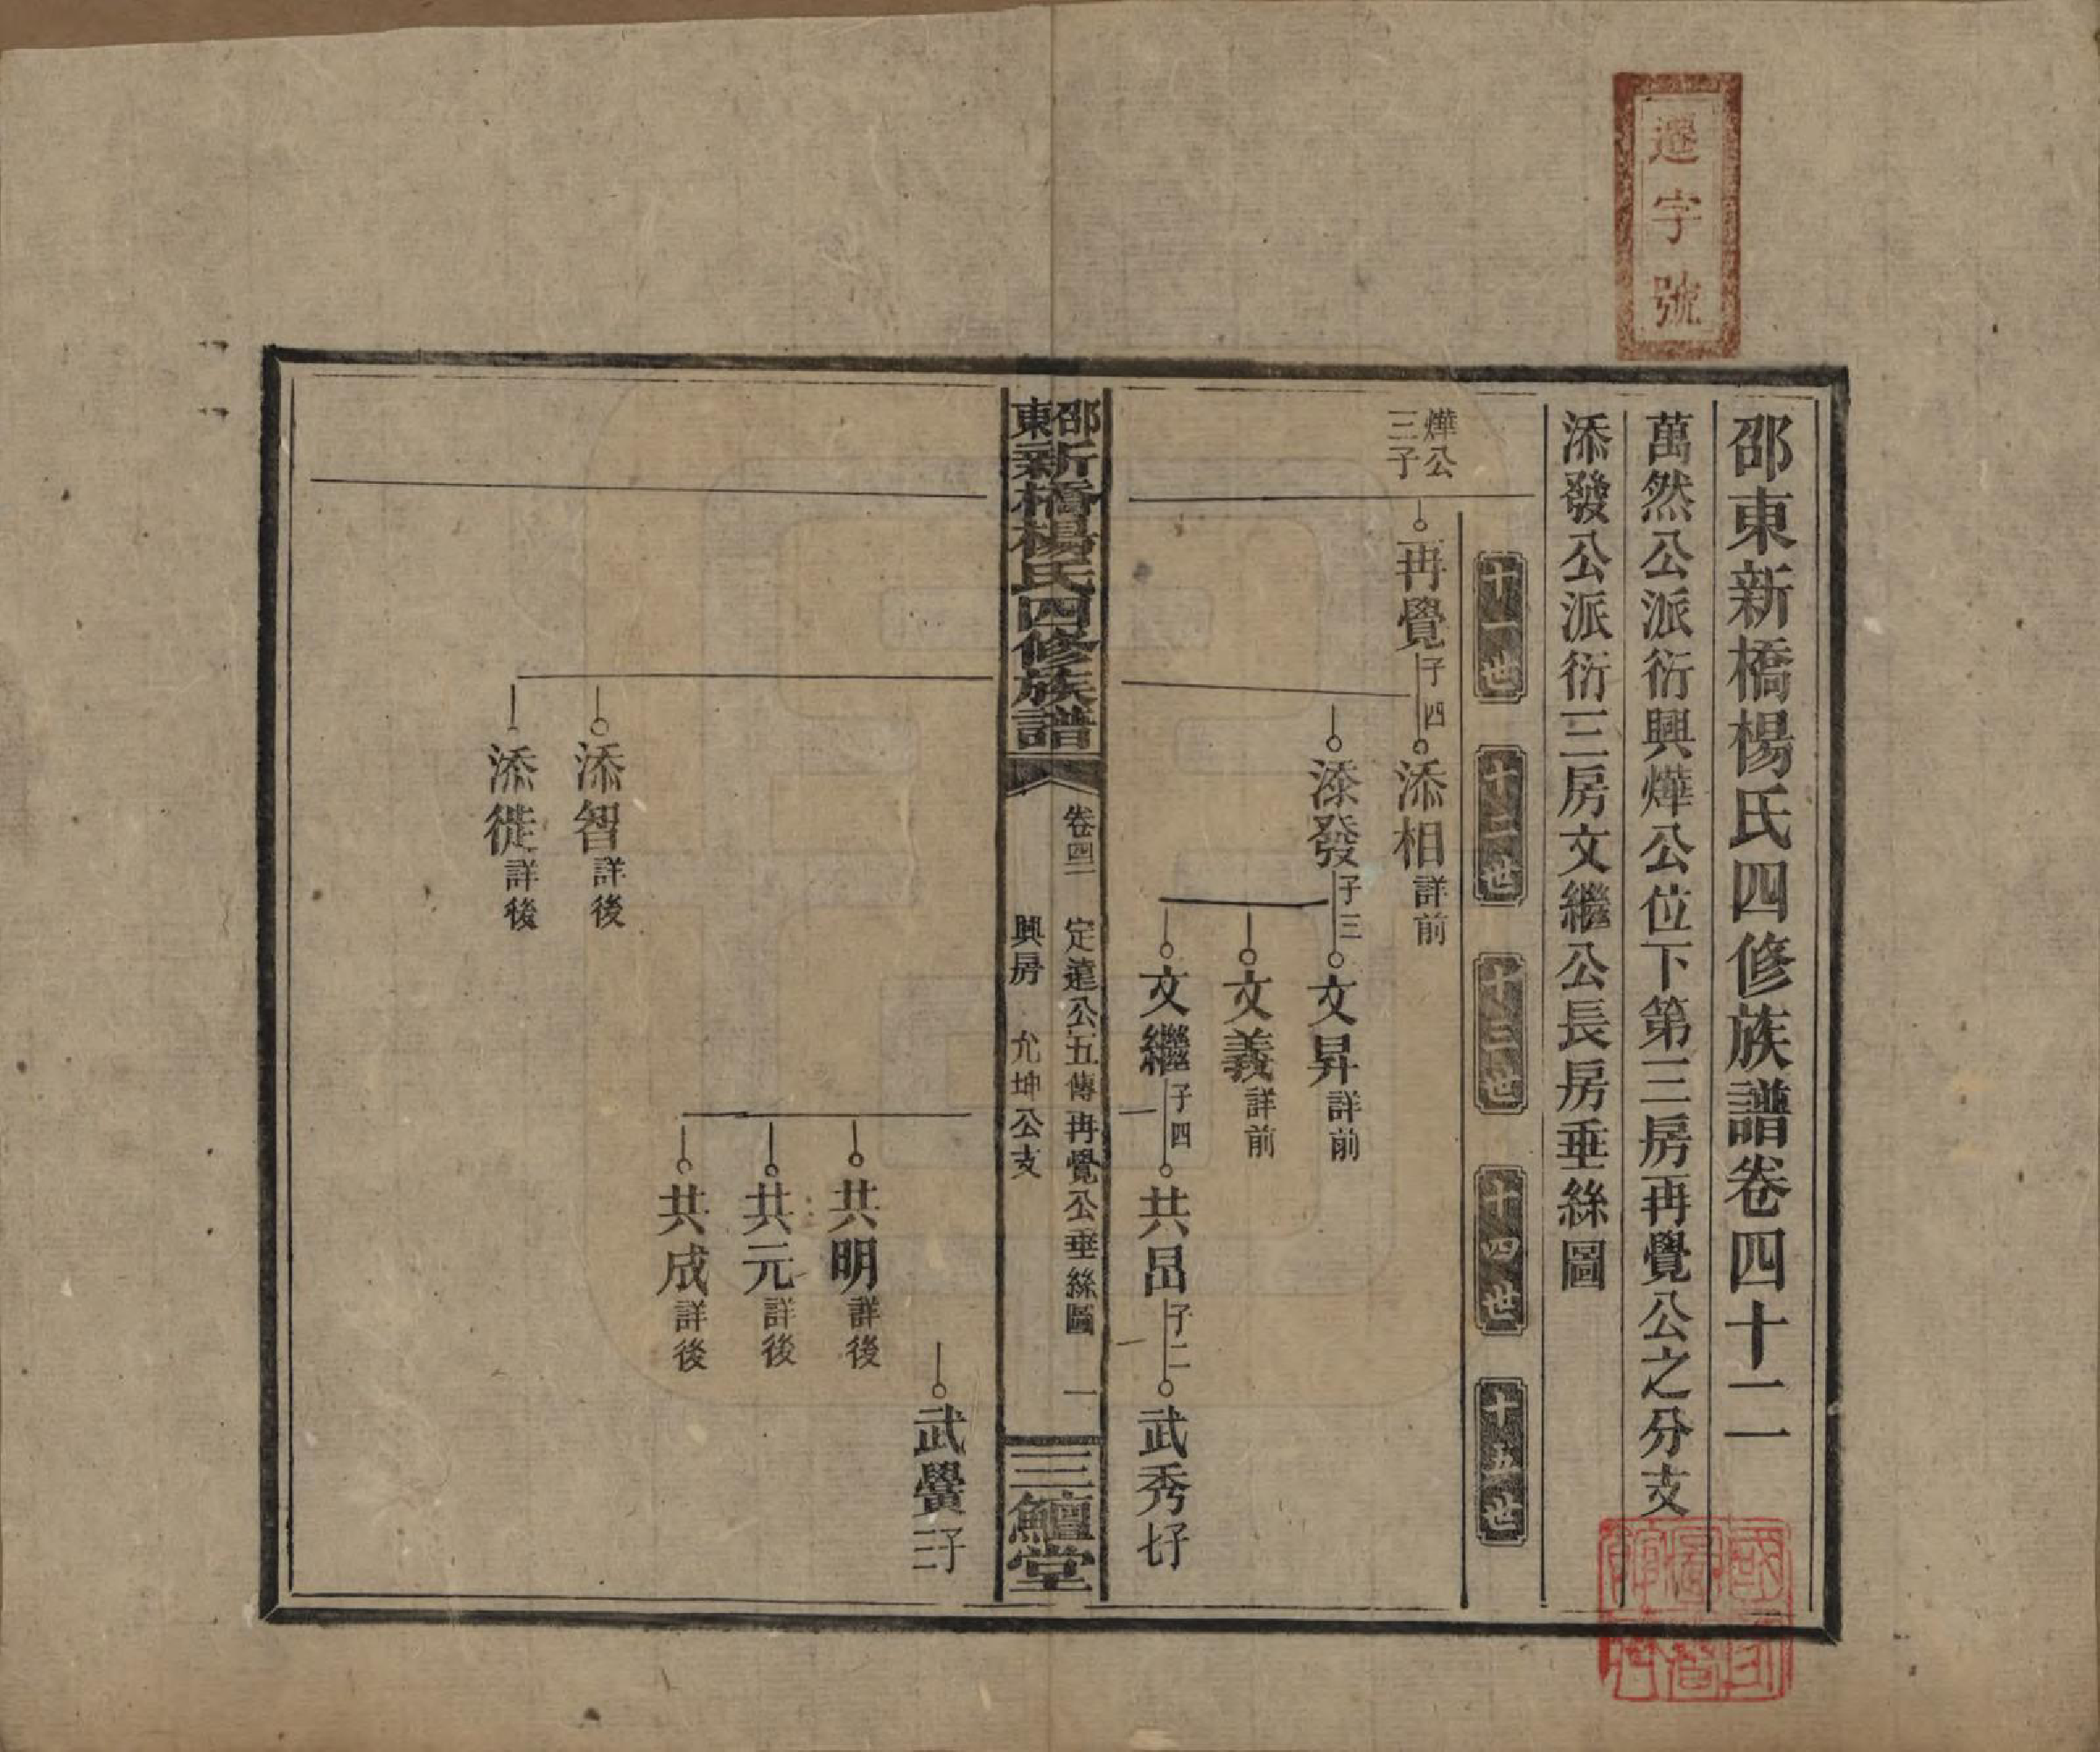 遷字號
邵東新橋楊氏四修族譜卷四十二
萬然公派衍興燁公位下第三房再覺公之分支
添發公派衍三房文繼公長房垂絲圖
十一世
十二世
十三世
十四世
十五世
燁公
三子
再覺 子四
添相 詳前
添發 子三
文昇 詳前
文義 詳前
文繼 子四
共昌 子二
武秀 子七
邵東新橋楊氏四修族譜
卷四二
定遠公五傳再覺公垂絲圖
一
興房 允坤公支
三鱣堂
武黌 子二
共明 詳後
共元 詳後
共成 詳後
添智 詳後
添徙 詳後